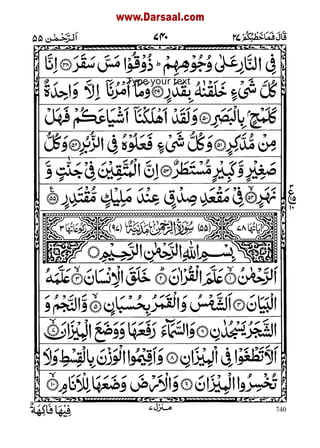 www.Darsaal.com
قَالَ فَمَا خَطْبُكُمْ ٢٧
٧٤٠
اَلرَّحْمٰن ٥٥
فِى النَّارِ عَلٰى وُجُوْهِهِمْ ؕ ذُوْقُوْا مَسَّ سَقَرَ ﴿٤٨﴾ اِنَّا
Type your text
كُلَّ شَىْءٍ خَلَقْنٰهُ بِقَدَرٍ ﴿٤٩﴾ وَمَاۤ اَمْرُنَاۤ اِلَّا وَاحِدَةٌ
كَلَمْحٍۭ بِالْبَصَرِ ﴿٥٠﴾ وَلَقَدْ اَهْلَكْنَاۤ اَشْيَاعَكُمْ فَهَلْ
مِنْ مُّدَّكِرٍ ﴿٥١﴾ وَكُلُّ شَىْءٍ فَعَلُوْهُ فِى الزُّبُرِ ﴿٥٢﴾ وَكُلُّ
صَغِيْرٍ وَّكَبِيْرٍ مُّسْتَطَرٌ ﴿٥٣﴾ اِنَّ الْمُتَّقِيْنَ فِىْ جَنّٰتٍ وَّ
نَهَرٍ ﴿٥٤﴾ فِىْ مَقْعَدِ صِدْقٍ عِنْدَ مَلِيْكٍ مُّقْتَدِرٍ ﴿٥٥﴾
اٰيَاتُهَا ٧٨ (٥٥) سُوْرَةُ الرَّحْمٰنِ مَدَنِيَّةٌ (٩٧) رُكُوْعَاتُهَا ٣
بِسْمِ اللّٰهِ الرَّحْمٰنِ الرَّحِيْمِ
اَلرَّحْمٰنُ ﴿١﴾ عَلَّمَ الْقُرْاٰنَ ﴿٢﴾ خَلَقَ الْاِنْسَانَ ﴿٣﴾ عَلَّمَهُ
الْبَيَانَ ﴿٤﴾ اَلشَّمْسُ وَالْقَمَرُ بِحُسْبَانٍ ﴿٥﴾ وَّالنَّجْمُ وَ
الشَّجَرُ يَسْجُدٰنِ ﴿٦﴾ وَالسَّمَآءَ رَفَعَهَا وَوَضَعَ الْمِيْزَانَ ﴿٧﴾
اَلَّا تَطْغَوْا فِى الْمِيْزَانِ ﴿٨﴾ وَاَقِيْمُوا الْوَزْنَ بِالْقِسْطِ وَلَا
تُخْسِرُوا الْمِيْزَانَ ﴿٩﴾ وَالْاَرْضَ وَضَعَهَا لِلْاَنَامِ ﴿١٠﴾
فِيْهَا فَاكِهَةٌ
منزل ٧
740